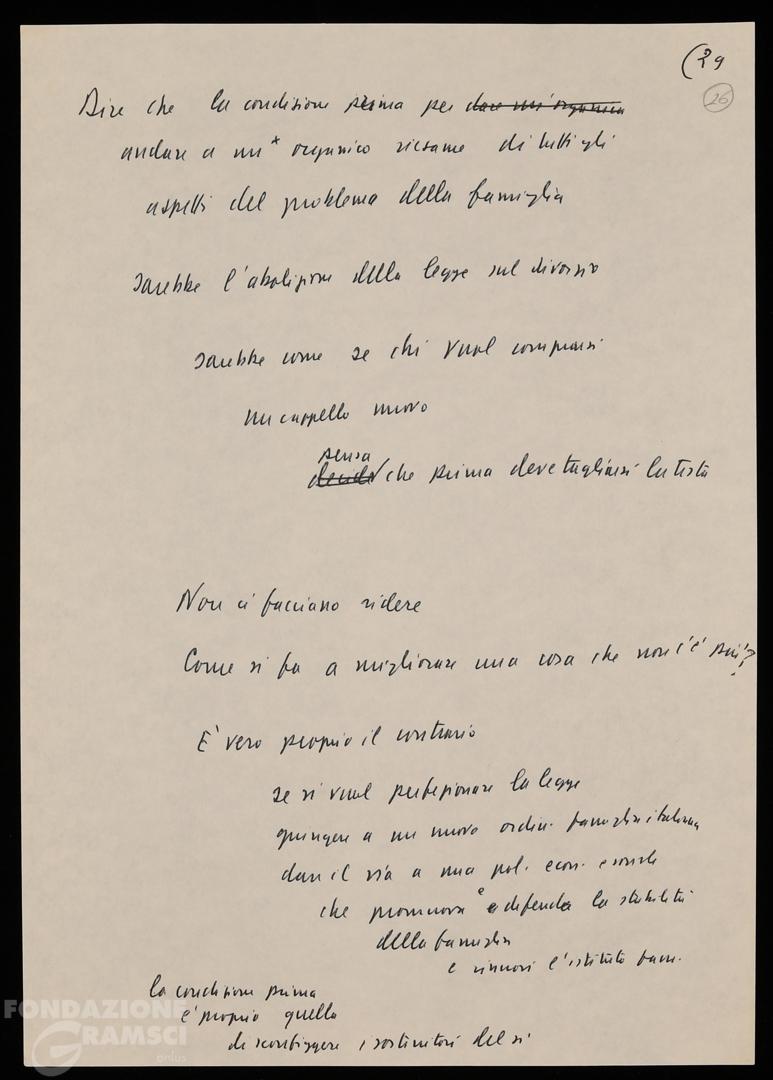 (29
26
Dire che la condizione prima per dare un'organica
andare a un* organico riesame di tutti gli
aspetti del problema della famiglia
sarebbe l'abolizione della legge sul divorzio
sarebbe come se chi vuol comprarsi
un cappello nuovo
pensa
decide che prima deve tagliarsi la testa
Non ci facciano ridere
Come si fa a migliorare una cosa che non c'è più?
E' vero proprio il contrario
se si vuol perfezionare la legge
giungere a un nuovo ordin. famiglia italiana
dare il via a una pol. econ. e sociale
che promuova e difenda la stabilità
della famiglia
e rinnovi l'istituto fam.
la condizione prima
è proprio quella
di sconfiggere i sostenitori del sì
FONDAZIONE
GRAMSCI
onlus